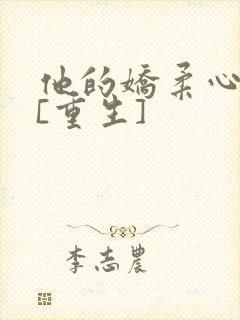 他的嬌柔心
[重生]
李志農